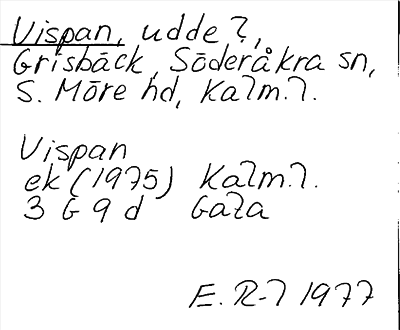 Vispan, udde l,
Grisbäck, Söderåkra sn,
S. Möre hd, Kalm. l.
Vispan
ek (1975) Kalm. l.
3 G 9 d Gata
E. R-l 1977